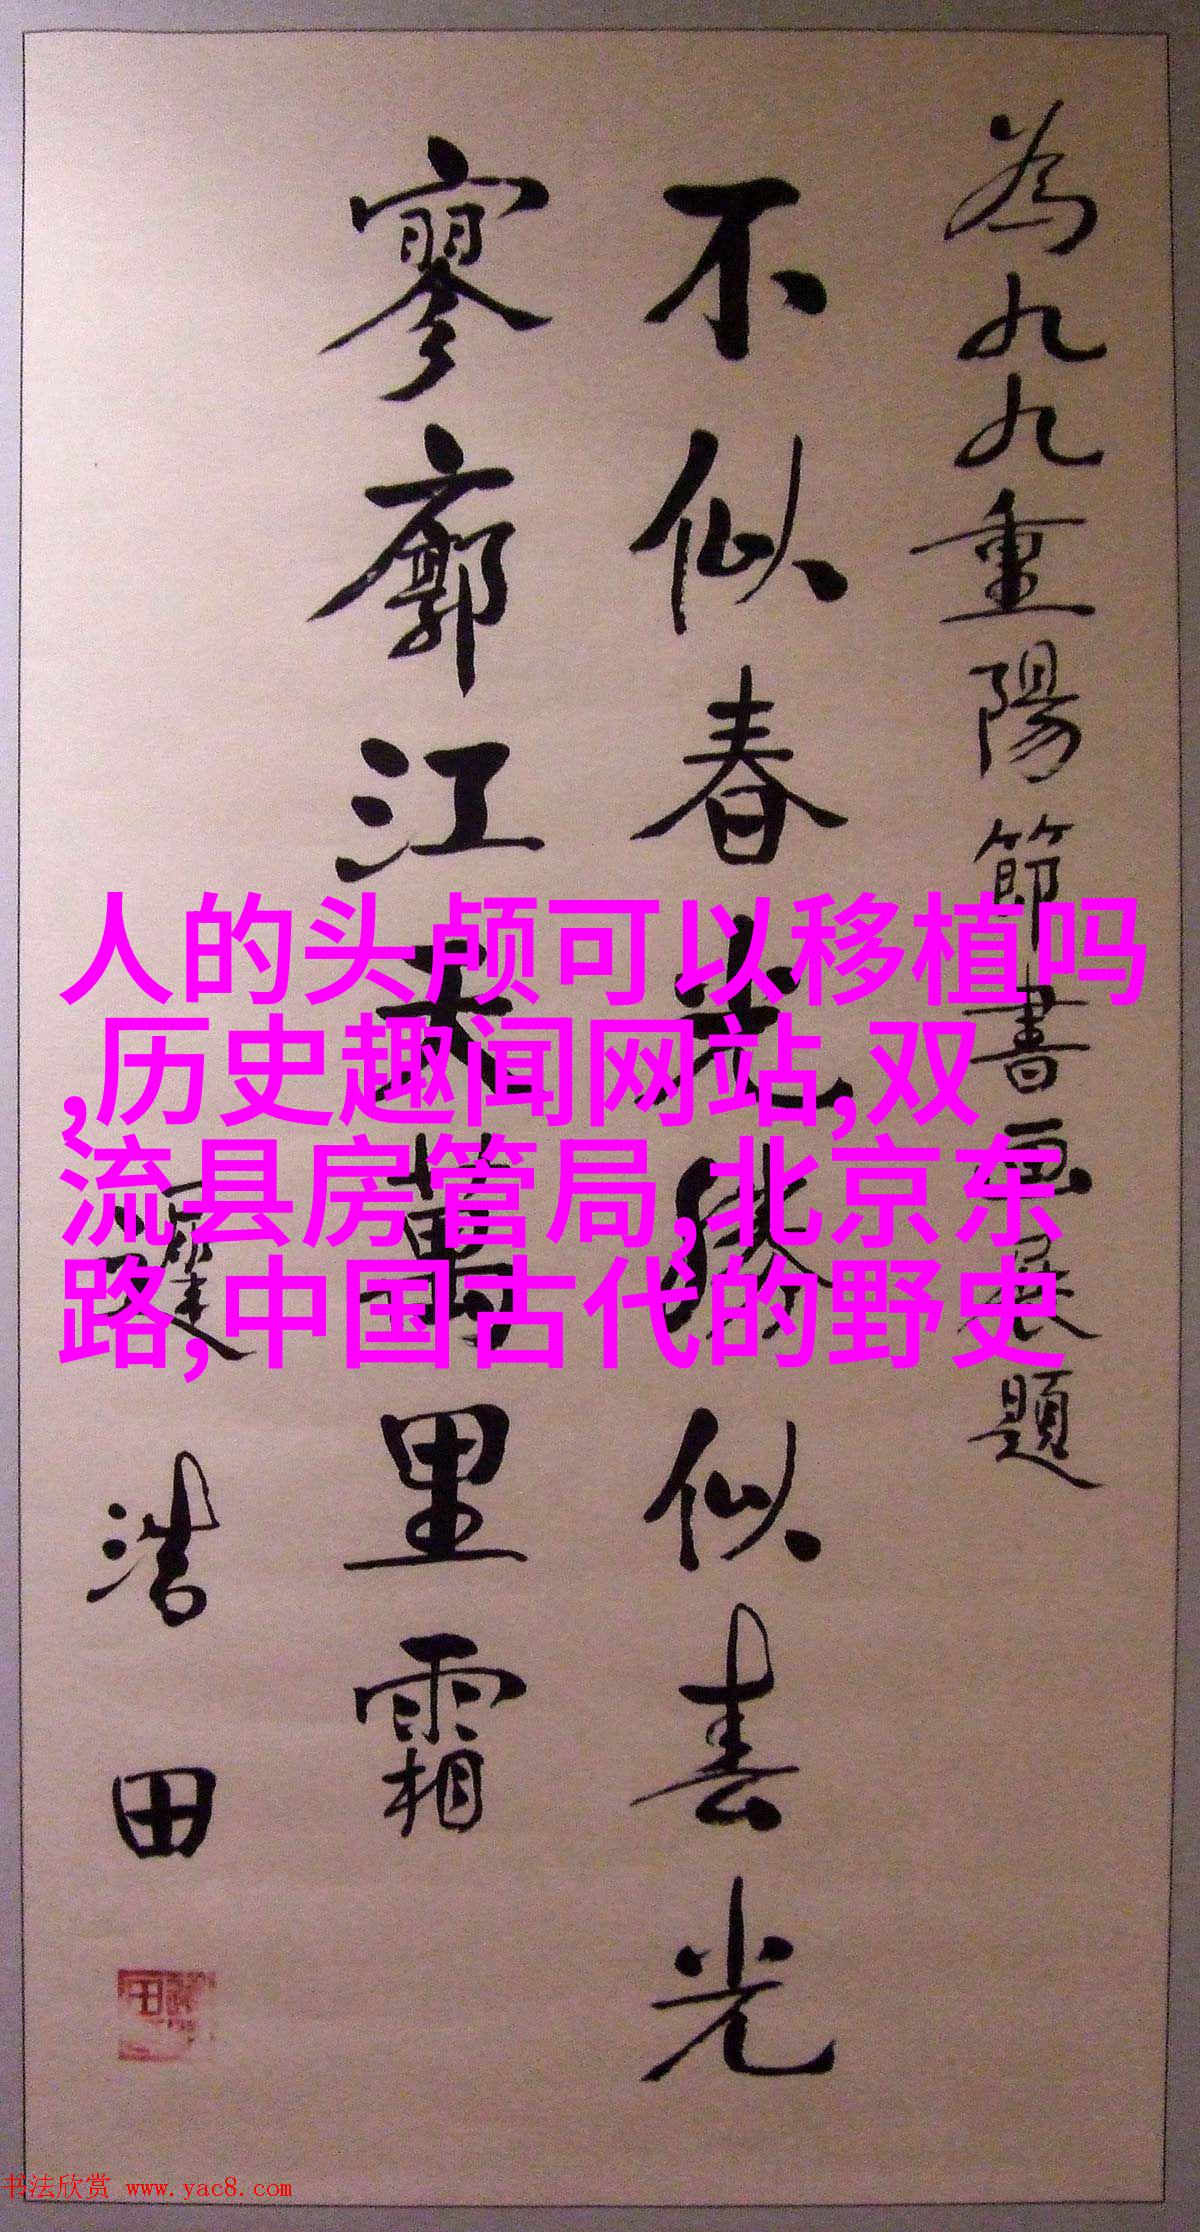 為九九重陽節書画展題
不似春光勝似春光
寥廓江天萬里霜
浩田
人的头颅可以移植吗
,历史趣闻网站,双
流县房管局,北京东
路,中国古代的野史
书法欣赏 www.yac8.com